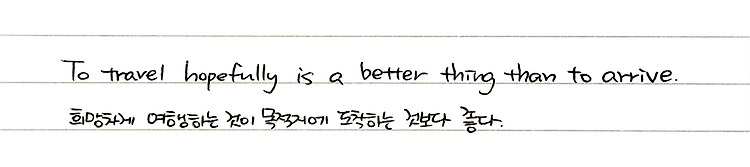 To travel hopefully is a better thing than to arrive.
희망차게 여행하는 것이 목적지에 도착하는 것보다 좋다.